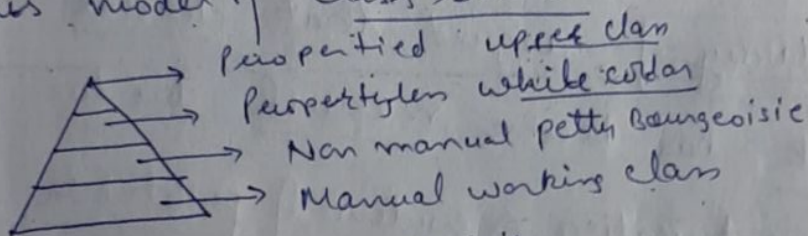 model
Propertied upper class
Propertyless white collar
Non manual petty Bourgeoisie
Manual working class